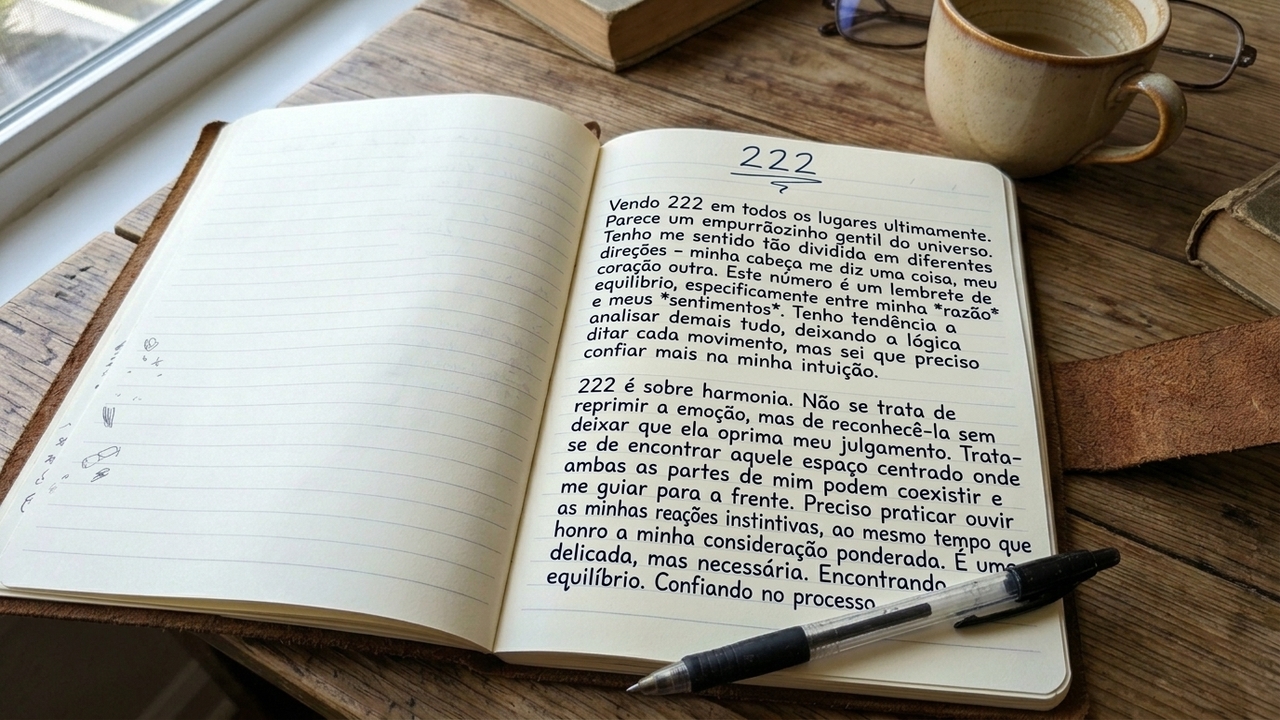 222
Vendo 222 em todos os lugares ultimamente.
Parece um empurrãozinho gentil do universo.
Tenho me sentido tão dividida em diferentes
direções – minha cabeça me diz uma coisa, meu
coração outra. Este número é um lembrete de
equilíbrio, especificamente entre minha *razão*
e meus *sentimentos*. Tenho tendência a
analisar demais tudo, deixando a lógica
ditar cada movimento, mas sei que preciso
confiar mais na minha intuição.
222 é sobre harmonia. Não se trata de
reprimir a emoção, mas de reconhecê-la sem
deixar que ela oprima meu julgamento. Trata-
se de encontrar aquele espaço centrado onde
ambas as partes de mim podem coexistir e
me guiar para a frente. Preciso praticar ouvir
as minhas reações instintivas, ao mesmo tempo que
honro a minha consideração ponderada. É
delicada, mas necessária. Encontrando
equilíbrio. Confiando no processo